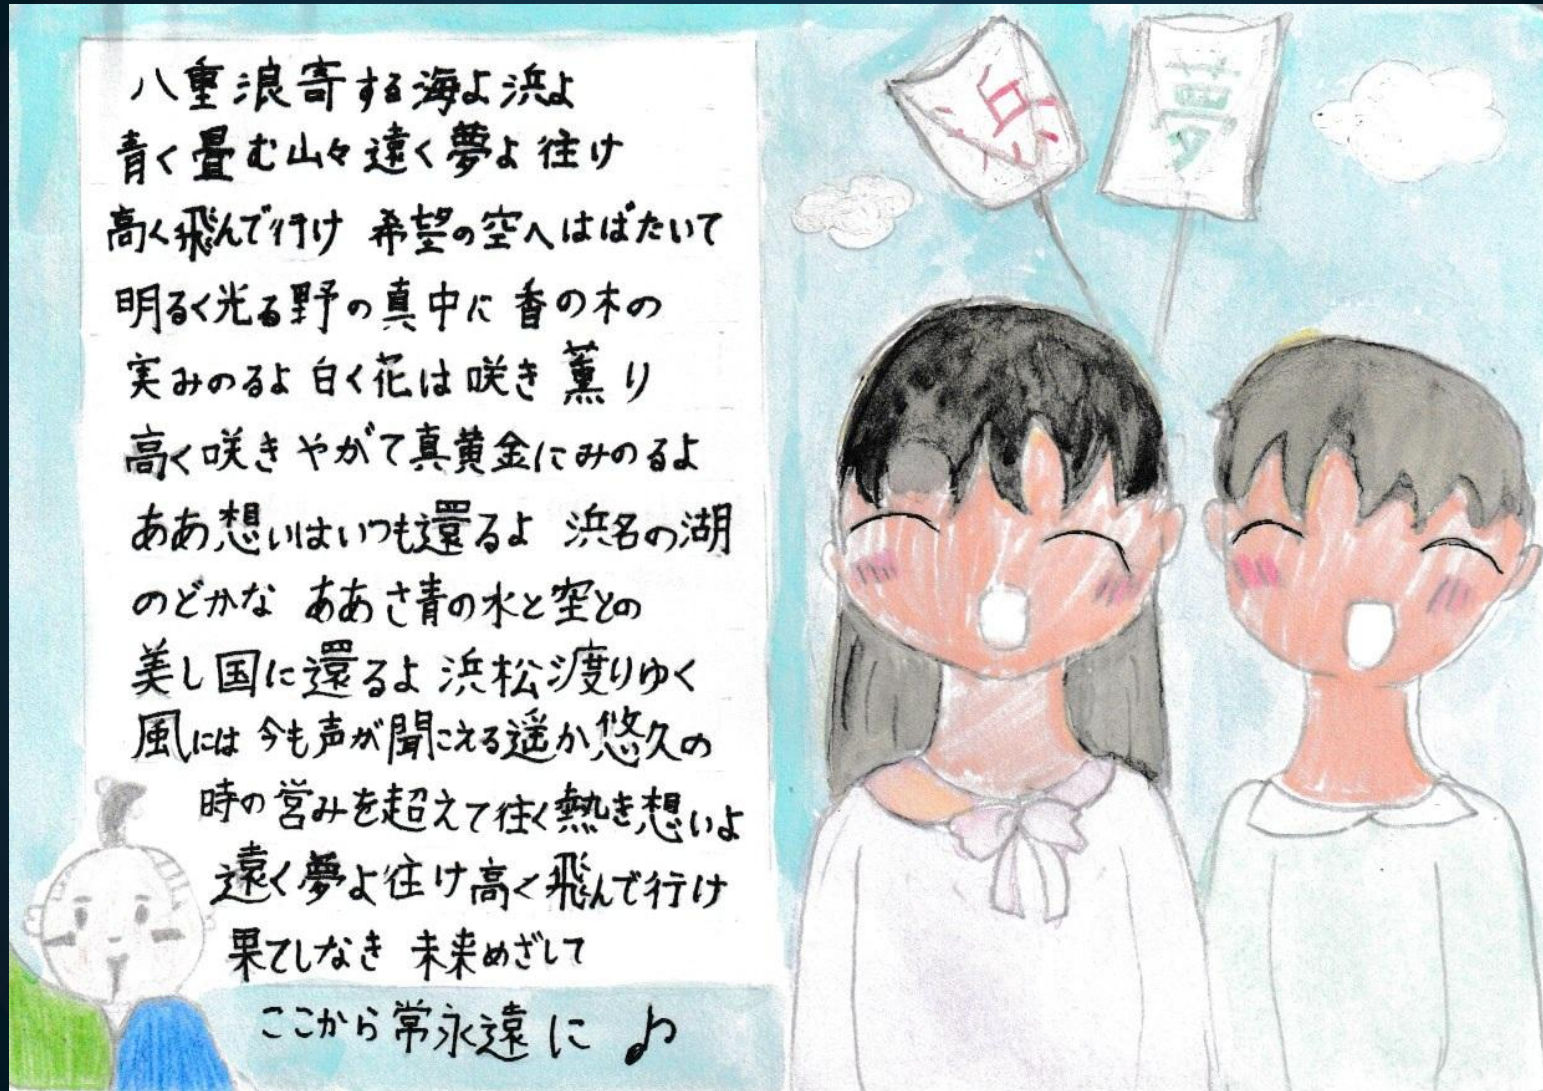 八重浪寄する海よ浜よ
青く畳む山々遠く夢よ往け
高く飛んで行け 希望の空へはばたいて
明るく光る野の真中に 香の木の
実みのるよ 白く花は咲き 薫り
高く咲き やがて真黄金にみのるよ
ああ想いはいつも還るよ 浜名の湖
のどかな ああさ青の水と空との
美し国に還るよ 浜松渡りゆく
風には 今も声が聞こえる遥か悠久の
時の営みを超えて往く熱き想いよ
遠く夢よ往け高く飛んで行け
果てしなき 未来めざして
ここから常永遠に ♪
浜
夢